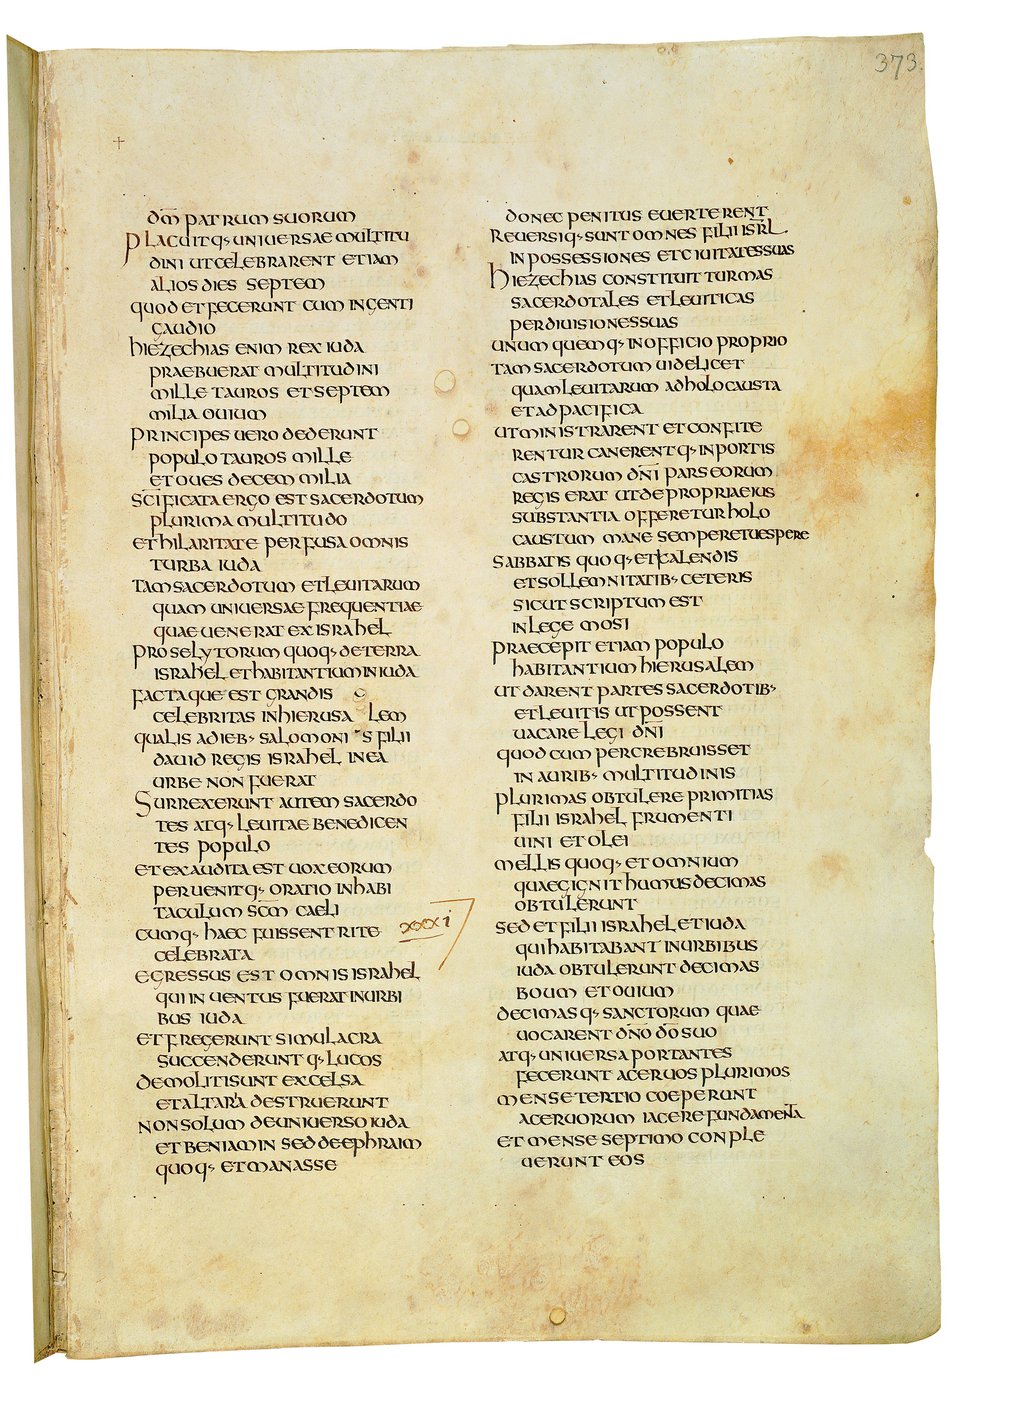 373.
dm̄ patrum suorum
placuitq· universae multitu
dini ut celebrarent etiam
alios dies septem
quod et fecerunt cum ingenti
gaudio
hiezechias enim rex iuda
praebuerat multitudini
mille tauros et septem
milia ovium
principes vero dederunt
populo tauros mille
et oves decem milia
sc̄ificata ergo est sacerdotum
plurima multitudo
et hilaritate perfusa omnis
turba iuda
tam sacerdotum et levitarum
quam universae frequentiae
quae venerat ex israhel
proselytorum quoq· de terra
israhel et habitantium in iuda
factaque est grandis
celebritas in hierusalem
qualis a dieb· salomonis filii
david regis israhel in ea
urbe non fuerat
surrexerunt autem sacerdo
tes atq· levitae benedicen
tes populo
et exaudita est vox eorum
pervenitq· oratio in habi
taculum sc̄m caeli
cumq· haec fuissent rite
xxxi
celebrata
egressus est omnis israhel
qui inventus fuerat in urbi
bus iuda
et fregerunt simulacra
succenderuntq· lucos
demoliti sunt excelsa
et altaria destruerunt
non solum de universo iuda
et beniamin sed de ephraim
quoq· et manasse
donec penitus everterent
reversiq· sunt omnes filii isrl̄
in possessiones et civitates suas
hiezechias constituit turmas
sacerdotales et leviticas
per divisiones suas
unumquemq· in officio proprio
tam sacerdotum videlicet
quam levitarum ad holocausta
et ad pacifica
ut ministrarent et confite
rentur canerentq· in portis
castrorum dn̄i pars eorum
regis erat ut de propria eius
substantia offeretur holo
caustum mane semper et vespere
sabbatis quoq· et kalendis
et sollemnitatib· ceteris
sicut scriptum est
in lege mosi
praecepit etiam populo
habitantium hierusalem
ut darent partes sacerdotib·
et levitis ut possent
vacare legi dn̄i
quod cum percrebruisset
in aurib· multitudinis
plurimas obtulere primitias
filii israhel frumenti
vini et olei
mellis quoq· et omnium
quae gignit humus decimas
obtulerunt
sed et filii israhel et iuda
qui habitabant in urbibus
iuda obtulerunt decimas
boum et ovium
decimasq· sanctorum quae
vocarent dn̄o dō suo
atq· universa portantes
fecerunt acervos plurimos
mense tertio coeperunt
acervorum iacere fundamen̄ta
et mense septimo conple
verunt eos